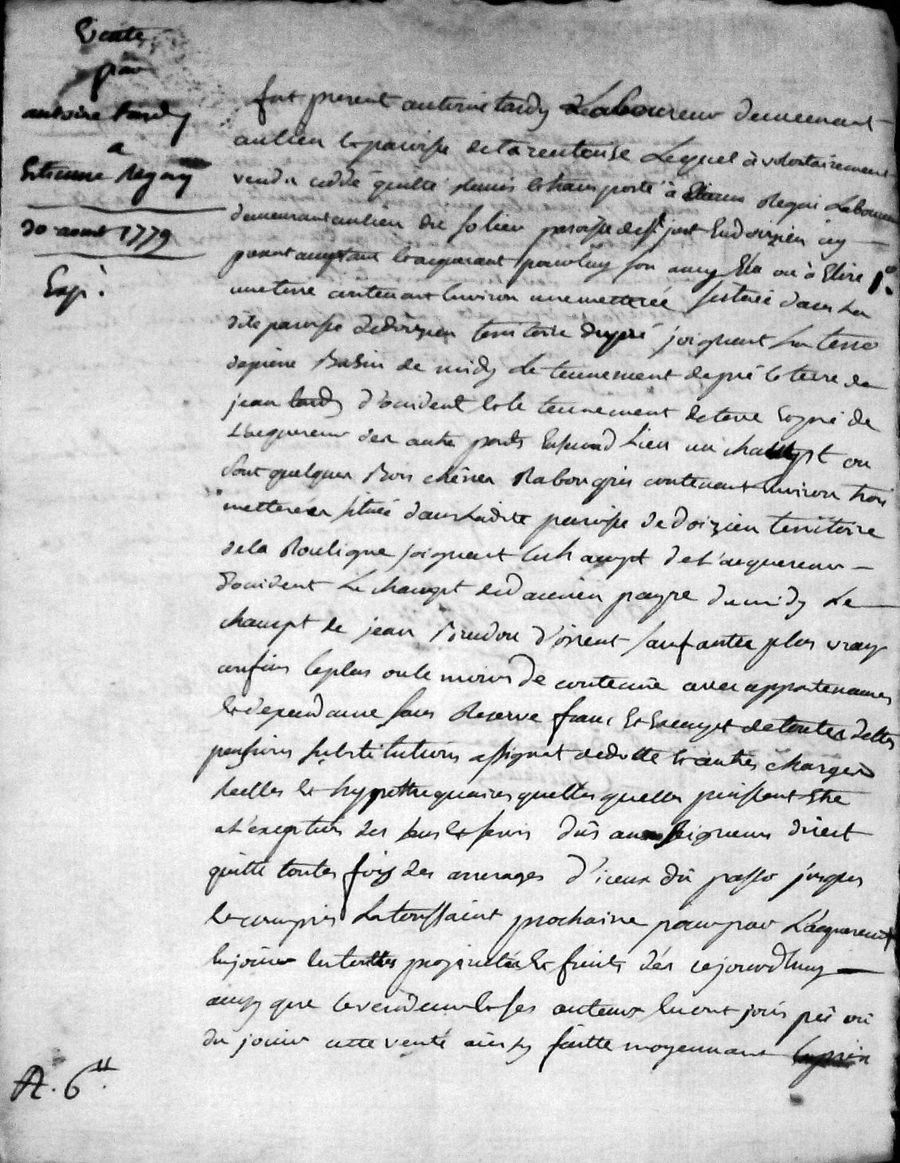 Vente
par
antoine tardy
a
Estienne Regny
30 aoust 1779
Exp.
fut present antoine tardy Laboureur demeurant
au lieu & paroisse de tarentaise Lequel à volontairement
vendu cedé quitté remis & transporté à Regni Laboureur
demeurant au lieu du solieu paroisse de st just En doizieu icy
present acceptant & acquerant pour luy son amy Elu ou à Elire 1°.
une terre contenant Environ une metterée située dans La
dite paroisse de doizieu territoire joignant La terre
de pierre Basin de midy Le tennement de pré & terre de
jean tardy d'occident & le tennement de terre & pré de
L'acquereur des autre parts En second Lieu un champt ou
sont quelques Bois chênes Rabougris contenant Environ trois
metterées située dans Ladite paroisse de doizieu territoire
de la joignant Le champt de L'acquereur
d'occident Le champt de damien payre de midy Le
champt de jean d'orient sauf autre plus vrays
confins le plus ou le moins de contenüe avec appartenances
& dependance sans Reserve franc & Exempt de toutes dettes
pensions substitutions assignat de dotte & autres charges
Reelles & hypothequaires quelles quelles puissent Etre
a L'exception des cens & servis dûs aux seigneurs direct
quitte toutes fois des arrerages d'iceux du passé jusques
& compris La toussaint prochaine pour par L'acquereur
En jouir En toutes proprietés & fruits dès cejourd'huy
ainsy que le vendeur & ses auteurs En ont joui pû ou
dû jouir cette vente ainsy faitte moyennant
A. 6tt.